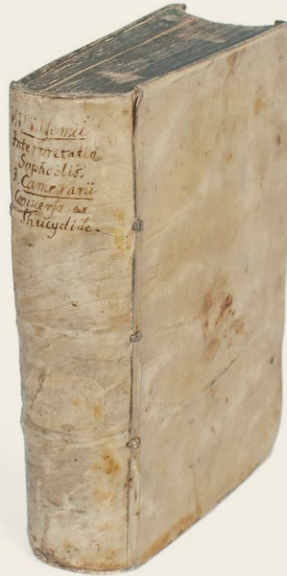 Interpretatio
Sophoclis.
J Camerarii
Conuers. ex
Thucydide.